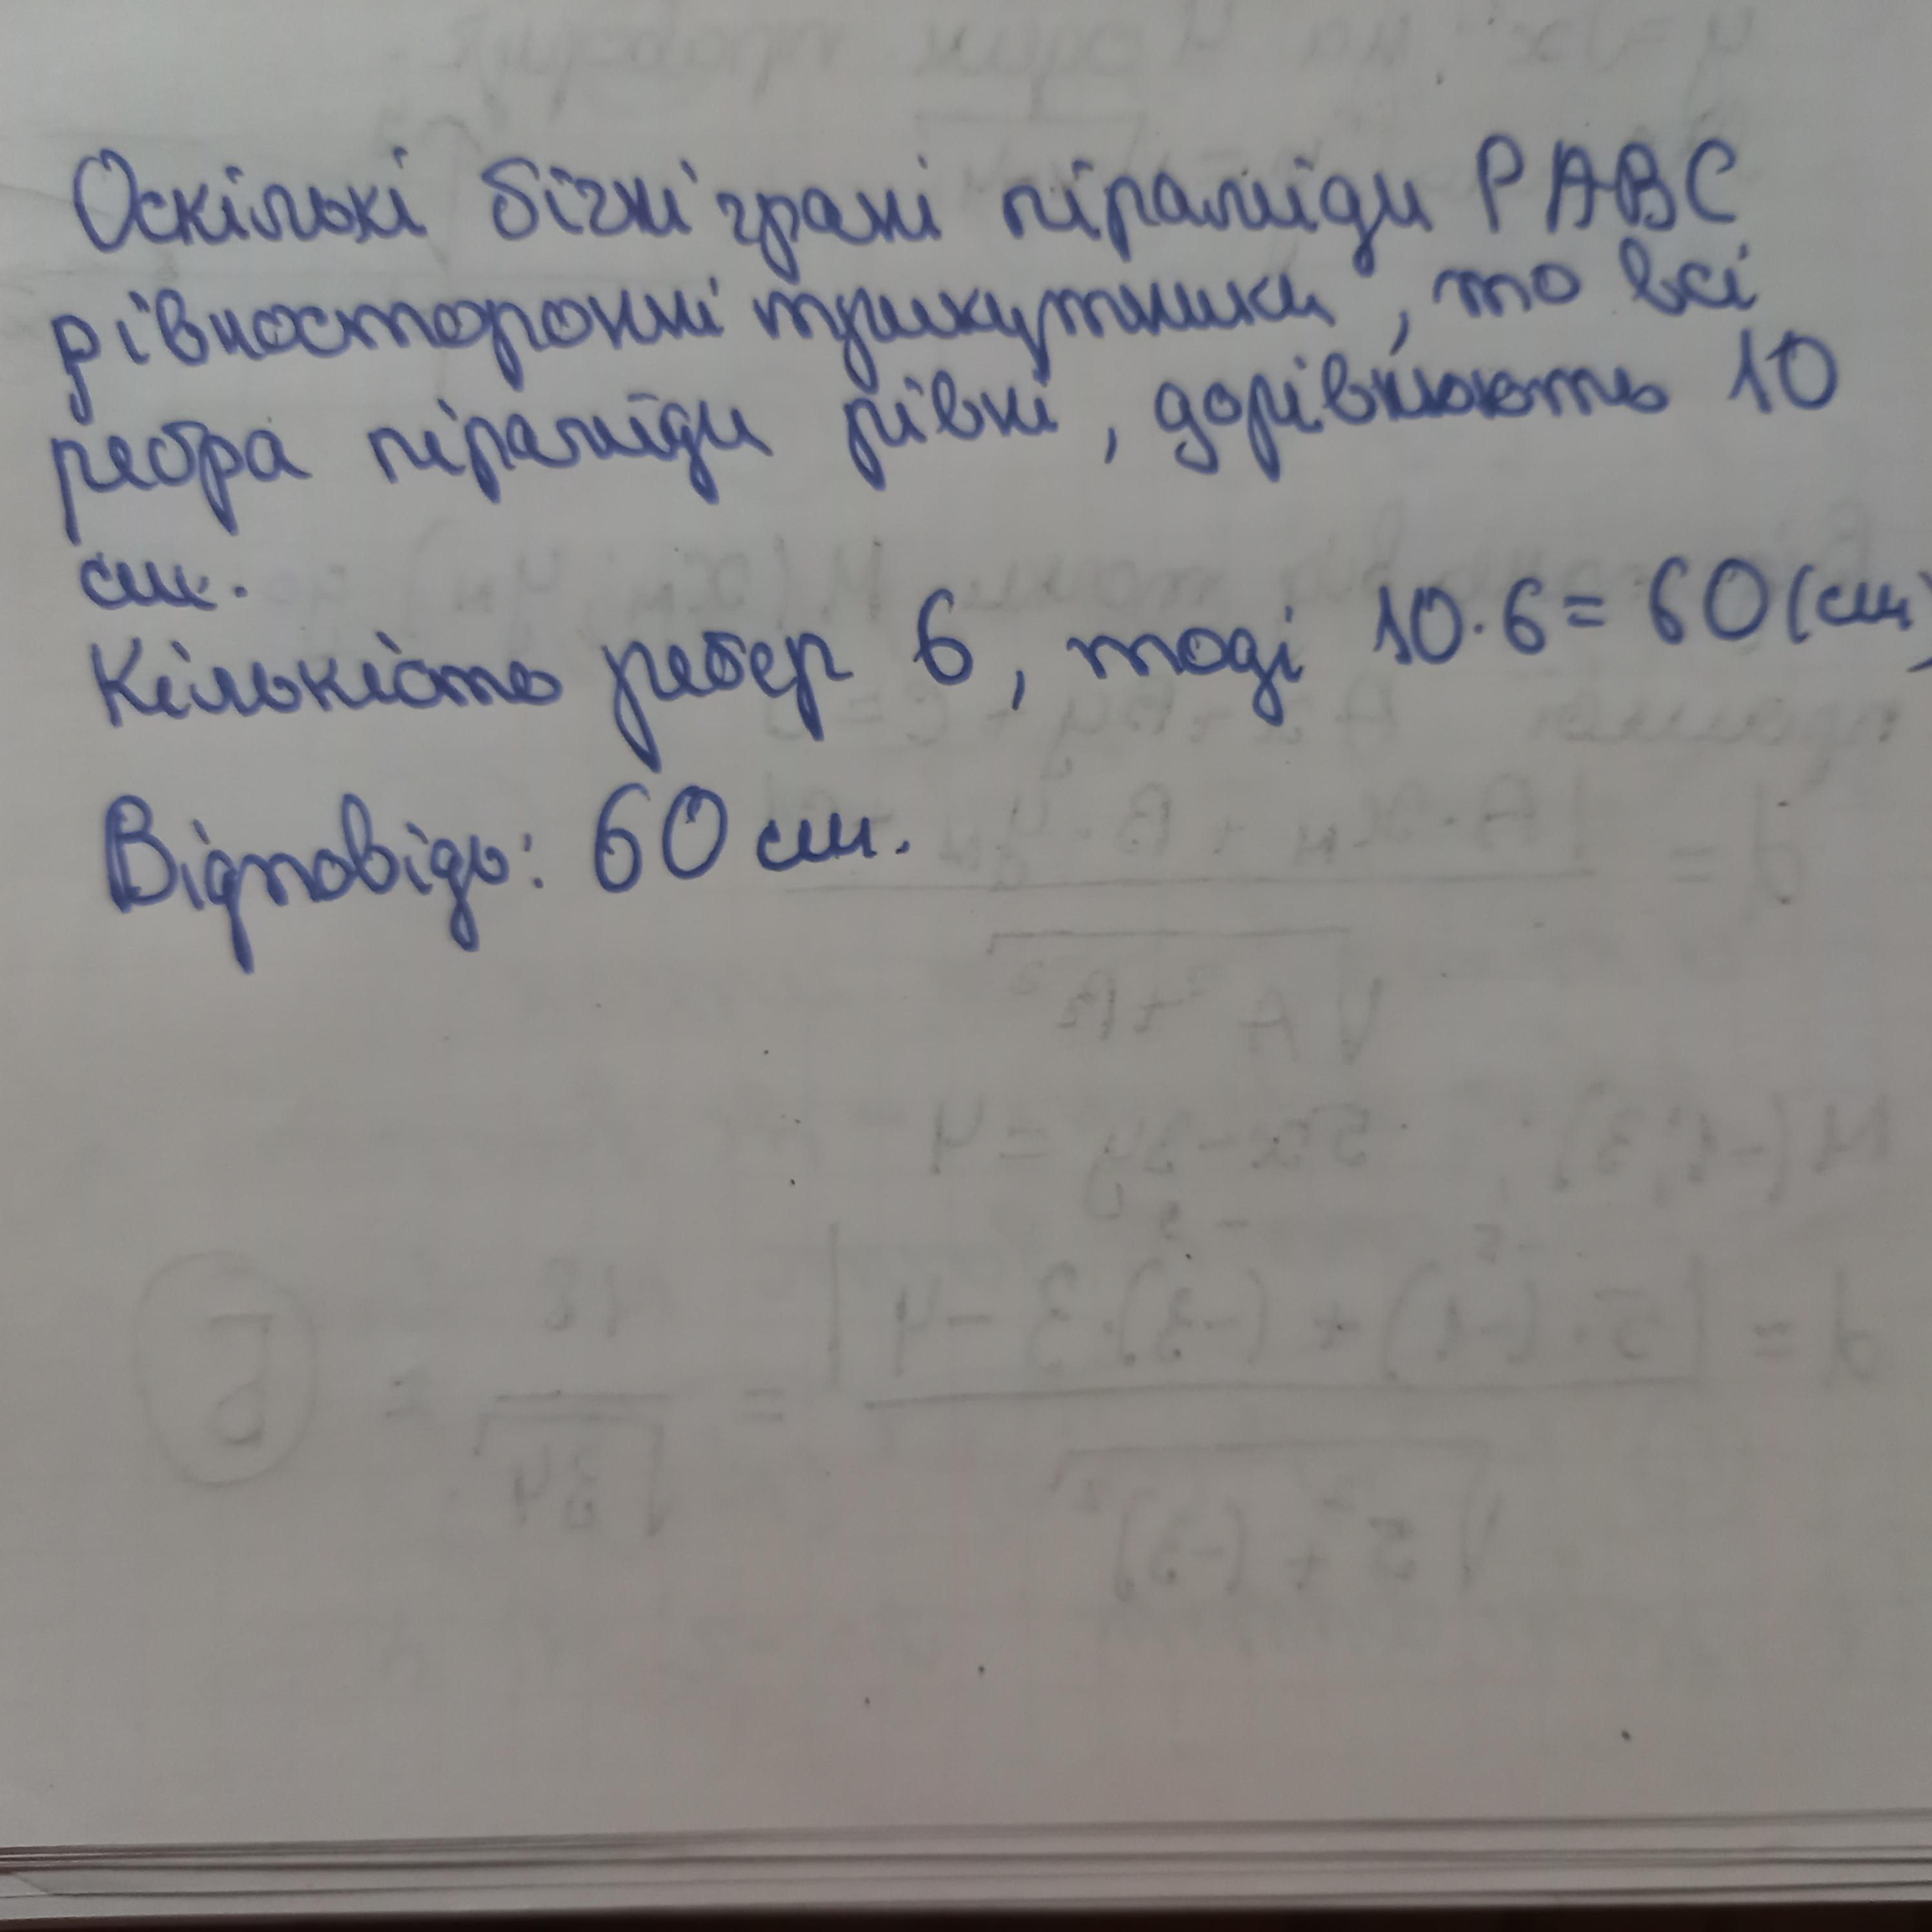 Оскількі бічні грані піраміди PABC
рівносторонні трикутники, то всі
ребра піраміди рівні, дорівнюють 10
см.
Кількість ребер 6, тоді 10·6=60(см)
Відповідь: 60 см.